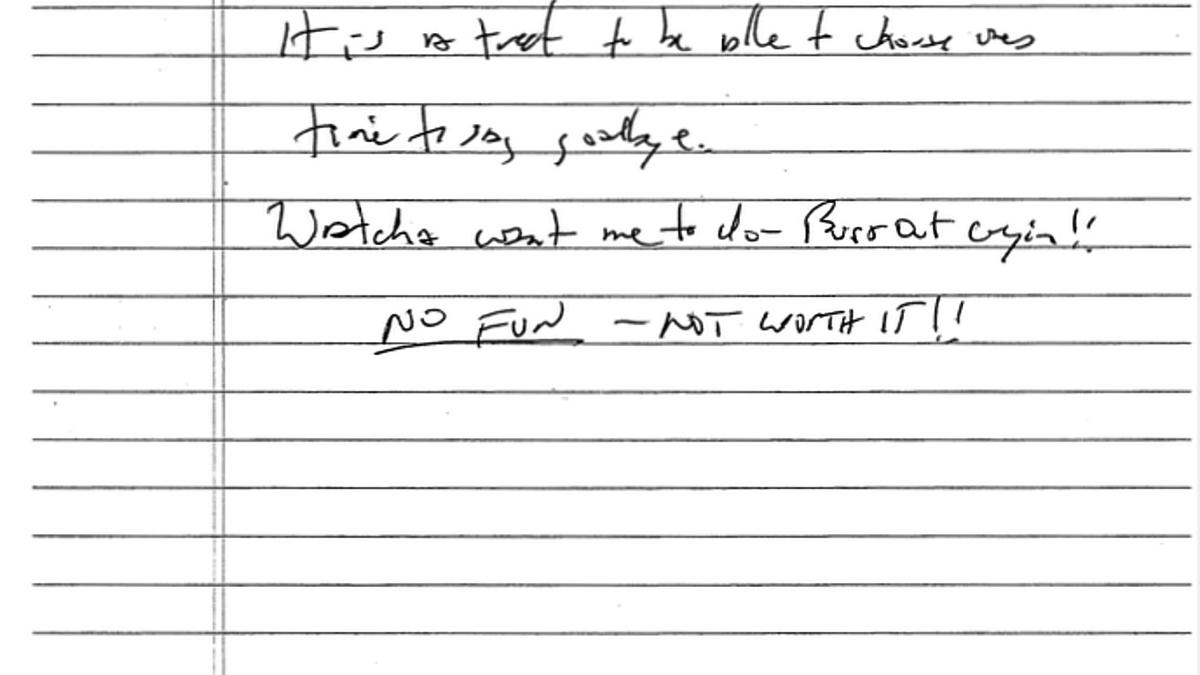 It is a treat to be able to choose ones
time to say goodbye.
Watcha want me to do – Bust out cryin!!
NO FUN – NOT WORTH IT!!